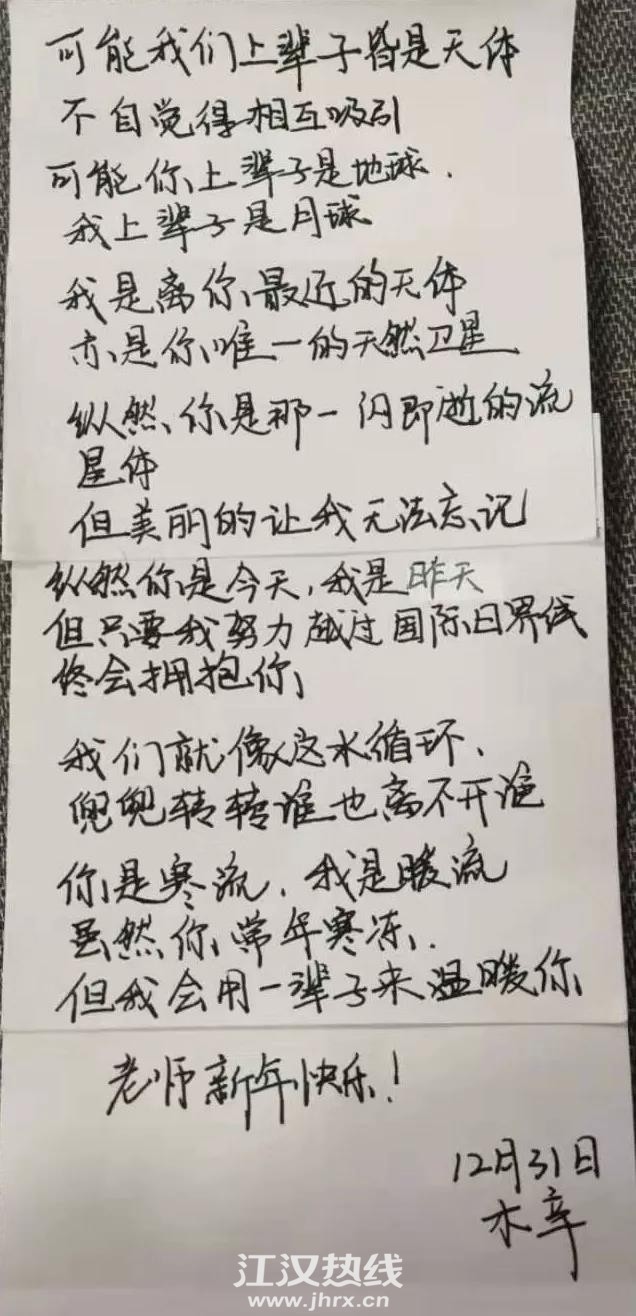 可能我们上辈子皆是天体
不自觉得相互吸引
可能你上辈子是地球.
我上辈子是月球
我是离你最近的天体
亦是你唯一的天然卫星
纵然你是那一闪即逝的流
星体
但美丽的让我无法忘记
纵然你是今天,我是昨天
但只要我努力越过国际日界线
终会拥抱你
我们就像这水循环、
兜兜转转谁也离不开谁
你是寒流,我是暖流
虽然你常年寒冻,
但我会用一辈子来温暖你
老师新年快乐!
12月31日
木辛
江汉热线
www.jhrx.cn